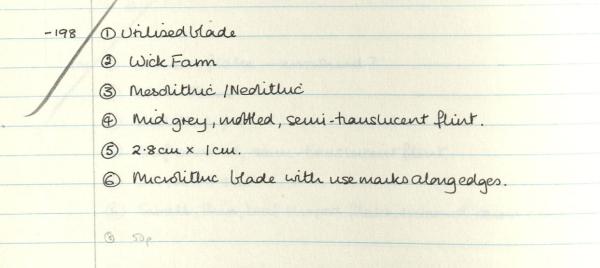 -198 ① Utilised blade
② Wick Farm
③ Mesolithic / Neolithic
④ Mid grey, mottled, semi-translucent flint.
⑤ 2.8cm x 1cm.
⑥ Microlithic blade with use marks along edges.
⑧ 50p